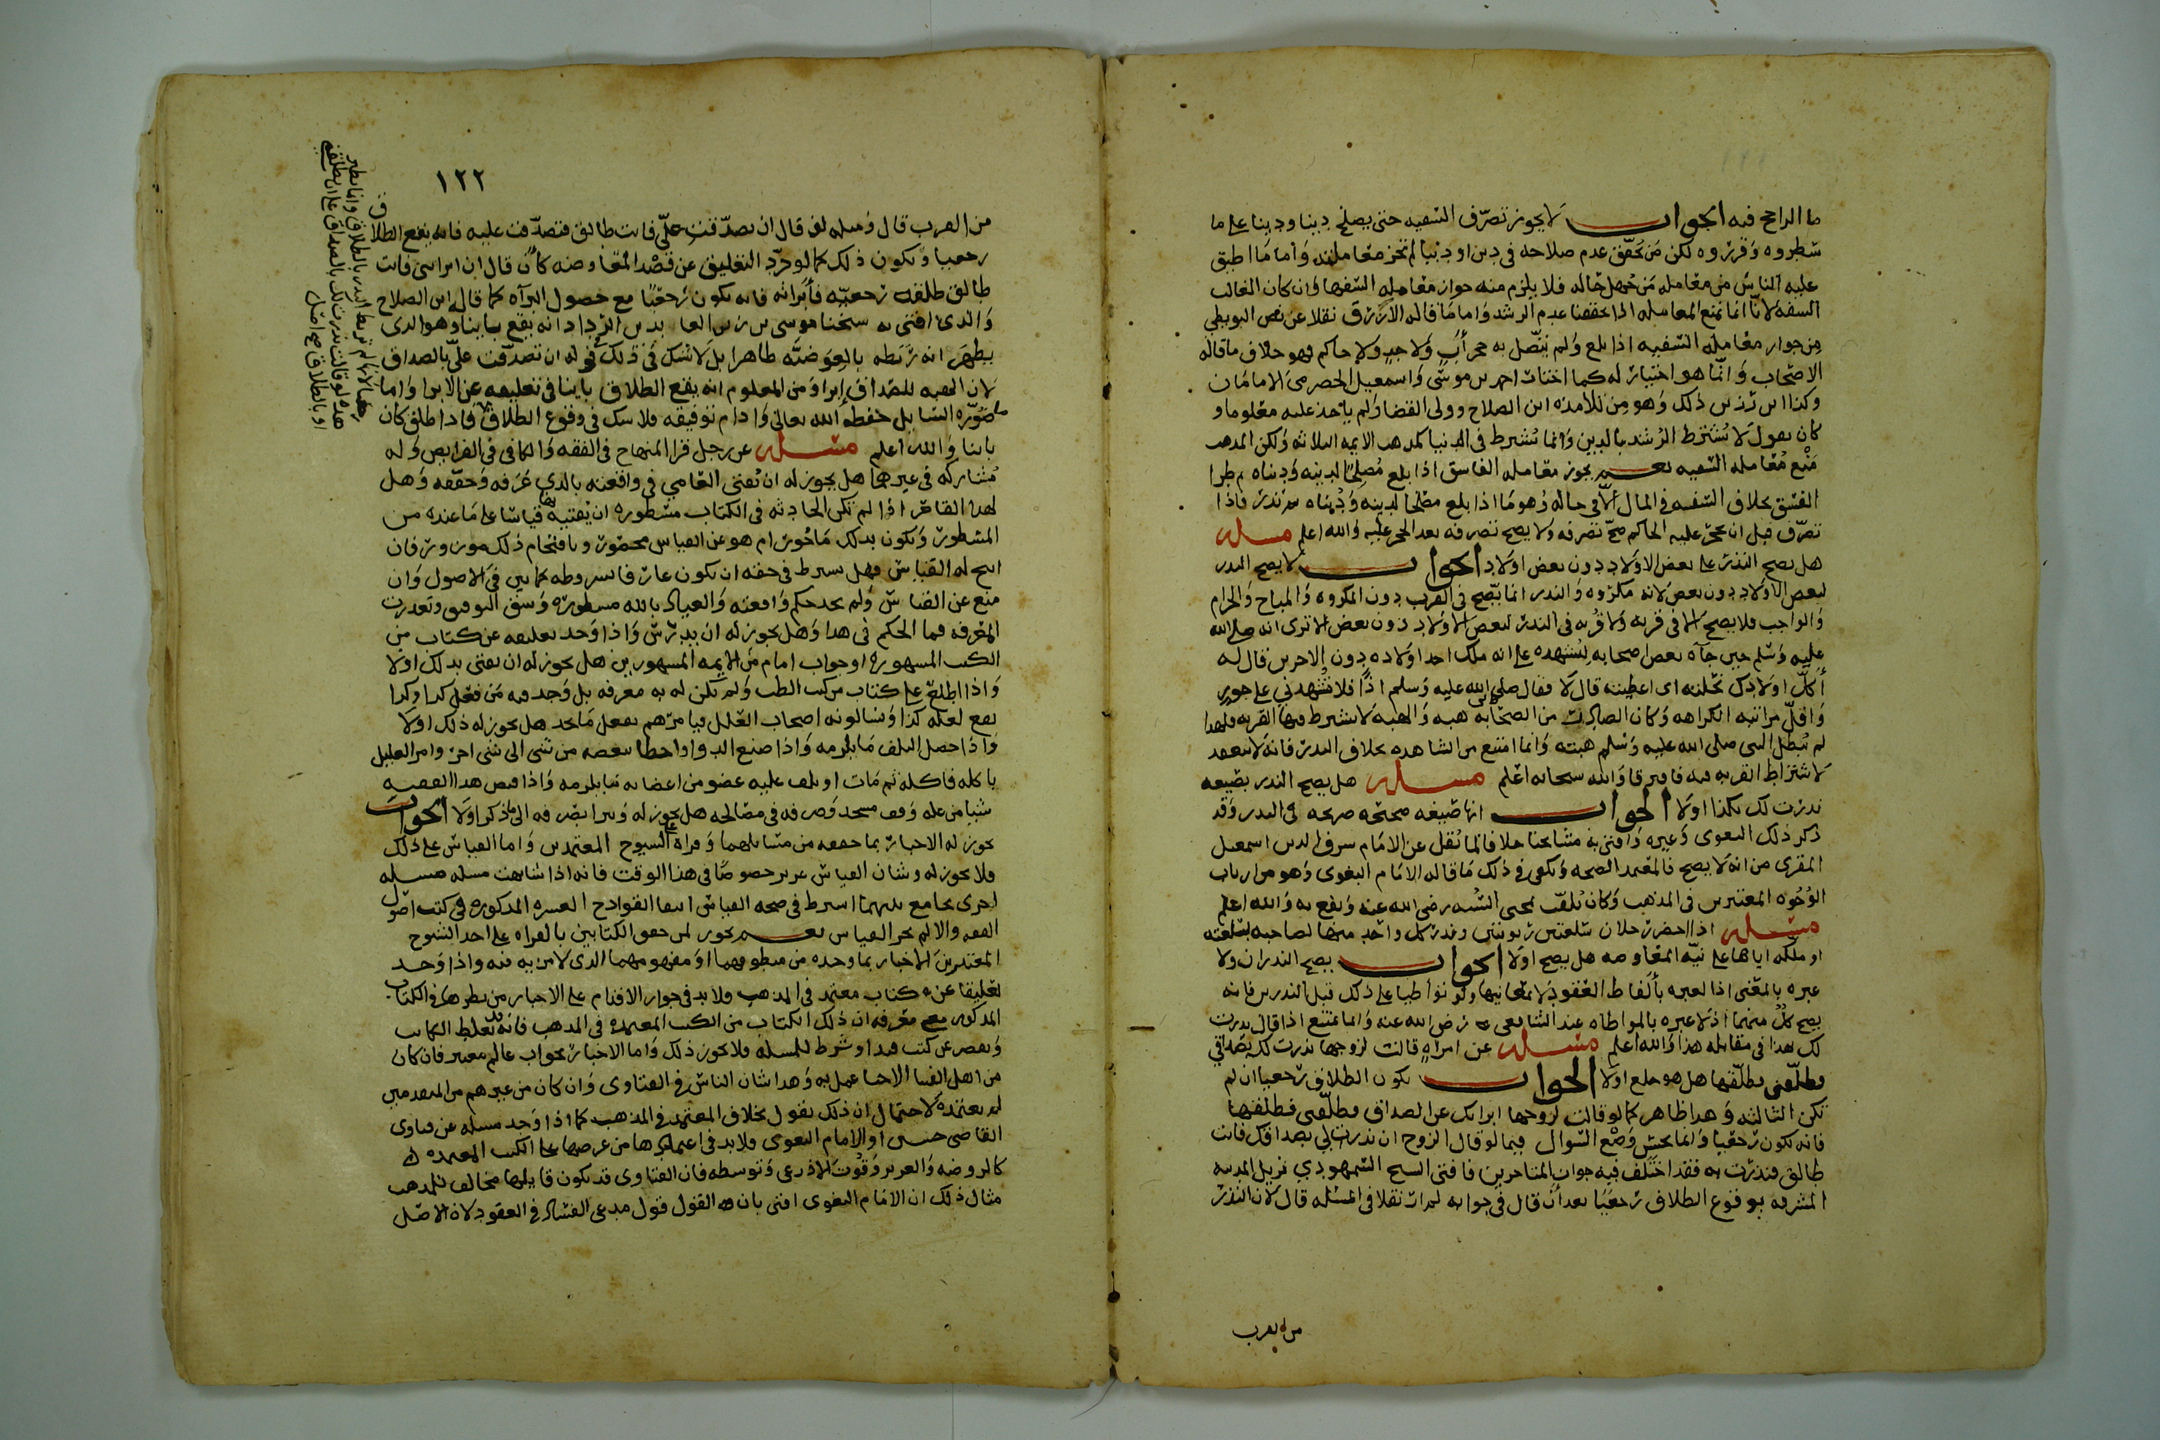 ما الراجح فيه الجواب لا يجوز تصرف السفيه حتى يصلح دينا ودنيا على ما
سطروه وقرروه لكن من تحقق عدم صلاحه في دين او دنيا لم تجز معاملته واما ما اطبق
عليه الناس من معامله من جهل حاله فلا يلزم منه جواز معامله السفها وان كان الغالب
السفه لانا انما نمنع المعامله اذا تحققنا عدم الرشد واما ما قاله الازرق نقلا عن نص البويطي
من جواز معامله السفيه اذا بلغ ولم يتصل به حجر أب ولا جد ولا حاكم فهو خلاف ما قاله
الاصحاب وانما هو اختيار له كما اختاره احمد بن موسى واسمعيل الحضرمي الامامان
وكذا ابن رزين ذلك وهو من تلامذه ابن الصلاح وولي القضا ولم ياخذ عليه معلوما و
كان يقول لا يشترط الرشد بالدين وانما يشترط في الدنيا كمذهب الايمه الثلاثه ولكن المذهب
منع معامله السفيه نعم يجوز معامله الفاسق اذا بلغ مصلحا لدينه ودنياه ثم طرا
الفسق بخلاف السفه في المال الا في حاله وهو ما اذا بلغ مصلحا لدينه ودنياه ثم بذر فاذا
تصرف قبل ان يحجر عليه الحاكم صح تصرفه ولا يصح تصرفه بعد الحجر عليه والله اعلم مسله
هل يصح النذر على بعض الاولاد دون بعض اولا الجواب لا يصح النذر
لبعض الاولاد دون بعض لانه مكروه والنذر انما يصح في القرب دون المكروه والمباح والحرام
والواجب فلا يصح الا في قربه ولا قربه في النذر لبعض الاولاد دون بعض الا ترى انه صلى الله
عليه وسلم حين جآه بعض اصحابه ليشهده على انه ملك احد اولاده دون الاخرين قال له
أكل اولادك نحلته اى اعطيته قال لا فقال صلى الله عليه وسلم اذًا فلا تشهدني على جور
واقل مراتبه الكراهه وكان الصادر من الصحابه هبه والهبه لا يشترط فيها القربه فلهذا
لم يبطل النبي صلى الله عليه وسلم هبته وانما امتنع من الشاهده بخلاف النذر فانه لا ينعقد
لاشتراط القربه فيه فافترقا والله سبحانه اعلم مسله هل يصح النذر بصيغه
نذرت لك بكذا اولا الجواب انها صيغه صحيحه صريحه في النذر وقد
ذكر ذلك البغوى وغيره وافتى به مشايخنا خلافا لما نقل عن الامام شرف الدين اسمعيل
المقرى من انه لا يصح فالمعتمد الصحه ويكفي في ذلك ما قاله الامام البغوى وهو من ارباب
الوجوه المعتبرين في المذهب وكان يلقب بمحيي السنه رضي الله عنه ونفع به والله اعلم
مسله اذا احضر رجلان سلعتين ونذر كل واحد منهما لصاحبه بسلعته
او ملكه اياها على نيه المعاوضه هل يصح اولا الجواب يصح النذران ولا
عبره بالمعنى اذ العبره بألفاظ العقود لا بمعانيها ولو تواطيا على ذلك قبل النذرين فانه
يصح كل منهما اذ لا عبره بالمواطاه عند الشافعي رضي الله عنه وانما يمتنع اذا قال نذرت
لك بهذا في مقابله هذا والله اعلم مسله عن امراه قالت لزوجها نذرت لك بصداقي
فطلقني فطلقها هل هو خلع اولا الجواب يكون الطلاق رجعيا ان لم
تكن الثالثه وهذا ظاهر كما لو قالت لزوجها ابراتك عن الصداق فطلقني فطلقها
فانه يكون رجعيا وانما يحسن وضع السوال فيما لو قال الزوج ان نذرت لي بصداقك فانت
طالق فنذرت به فقد اختلف فيه جواب المتاخرين فافتى الشيخ السمهودي نزيل المدينه
المشرفه بوقوع الطلاق رجعيا بعد أن قال في جوابه لم ار نقلا في المسله قال لان النذر
من القرب
١٢٢
من القرب قال ومثله لو قال ان تصدقت علي فانت طالق فتصدقت عليه فانه يقع الطلاق
رجعيا ويكون ذلك كما لو جرد التعليق عن قصد المعاوضه كأن قال ان ابراتني فانت
طالق طلقه رجعيه فأبراته فانه يكون رجعيا مع حصول البرآه كما قال ابن الصلاح
والذى افتى به شيخنا موسى بن زين العابدين الرداد انه يقع باينا وهو الذى
يظهر انه ربطه بالعوضيه ظاهرا بل لا شك في ذلك في قوله ان تصدقت علي بالصداق
لان الهبه للصداق ابرا ومن المعلوم انه يقع الطلاق باينا في تعليقه عن الابرا واما
ما صوره السايل حفظه الله تعالى وادام توفيقه فلا شك في وقوع الطلاق فاذا طلق كان
باينا والله اعلم مسله عن رجل قرا المنهاج في الفقه والكافي في الفرايض وله
مشاركه في غيرهما هل يجوز له ان يفتي العامي في واقعته بالذي عرفه وحققه وهل
لهذا القاصر اذا لم تكن الحادثه في الكتاب مسطوره ان يفتيه قياسا على ما عنده من
المسطور ويكون بذلك ماجور ام هو عن القياس محجور وباقتحام ذلك موزور فان
ابيح له القياس فهل يشترط في حقه ان يكون عارفا بشروطه كما بين في الاصول وان
منع عن القياس ولم يجد حكم واقعته والعياذ بالله مسطوره وتعذرت
المعرفه فما الحكم في هذا وهل يجوز له ان يدرس واذا وجد تعليقه عن كتاب من
الكتب المشهوره او جواب امام من الايمه المشهورين هل يجوز له ان يفتي بذلك اولا
واذا اطلع على كتاب من كتب الطب ولم يكن له به معرفه بل وجد فيه من فعل كذا وكذا
نفع لعله كذا وسالونه اصحاب العلل فيامرهم بفعل ما يجد هل يجوز له ذلك اولا
واذا حصل التلف ما يلزمه واذا صنع الدوا واخطا بنقصه من شي الى شي اخر وامر العليل
باكله فاكله ثم مات او تلف عليه عضو من اعضايه ما يلزمه واذا قبض هذا الفقيه
شيا من غله وقف مسجد وصرفه في مصالحه هل يجوز له ويبرا بصرفه الى ما ذكر اولا الجواب
يجوز له الاخبار بما حققه من مسايلهما وقراه على الشيوخ المعتمدين واما القياس على ذلك
فلا يجوز له وشان القياس عزيز خصوصًا في هذا الوقت فانه اذا شابهت مسله مسله
اخرى بجامع بينهما اشترط في صحه القياس انتفا القوادح العشره المذكوره في كتب اصول
الفقه والا لم يجز القياس نعم يجوز لمن حقق الكتابين بالقراه على احد الشيوخ
المعتبرين الاخبار بما وجده من منطوقهما او مفهومهما الذى لا مريه فيه واذا وجد
تعليقا عن كتاب معتمد في المذهب فلا بد في جواز الاقدام على الاخبار من نظرها في الكتاب
المذكور مع معرفه ان ذلك الكتاب من الكتب المعتمده في المذهب فانه قد يغلط الكاتب
ويقصر عن كتب قيد او شرط للمسله فلا يجوز ذلك واما الاخبار بجواب عالم معتبر فان كان
من اهل الفتيا الاحيا عمل به وهذا شان الناس في الفتاوى وان كان من غيرهم من المتقدمين
لم يعتمده لاحتمال ان ذلك بقول بخلاف المعتمد في المذهب كما اذا وجد مسله عن فتاوى
القاضي حسين او الامام البغوى فلا بد في اعتمادها من عرضها على الكتب المعتمده
كالروضه والعزيز وقوت الاذرعي وتوسطه فان الفتاوى قد يكون قايلها مخالف للمذهب
مثال ذلك ان الامام البغوى افتى بان القول قول مدعي الفساد في العقود لان الاصل